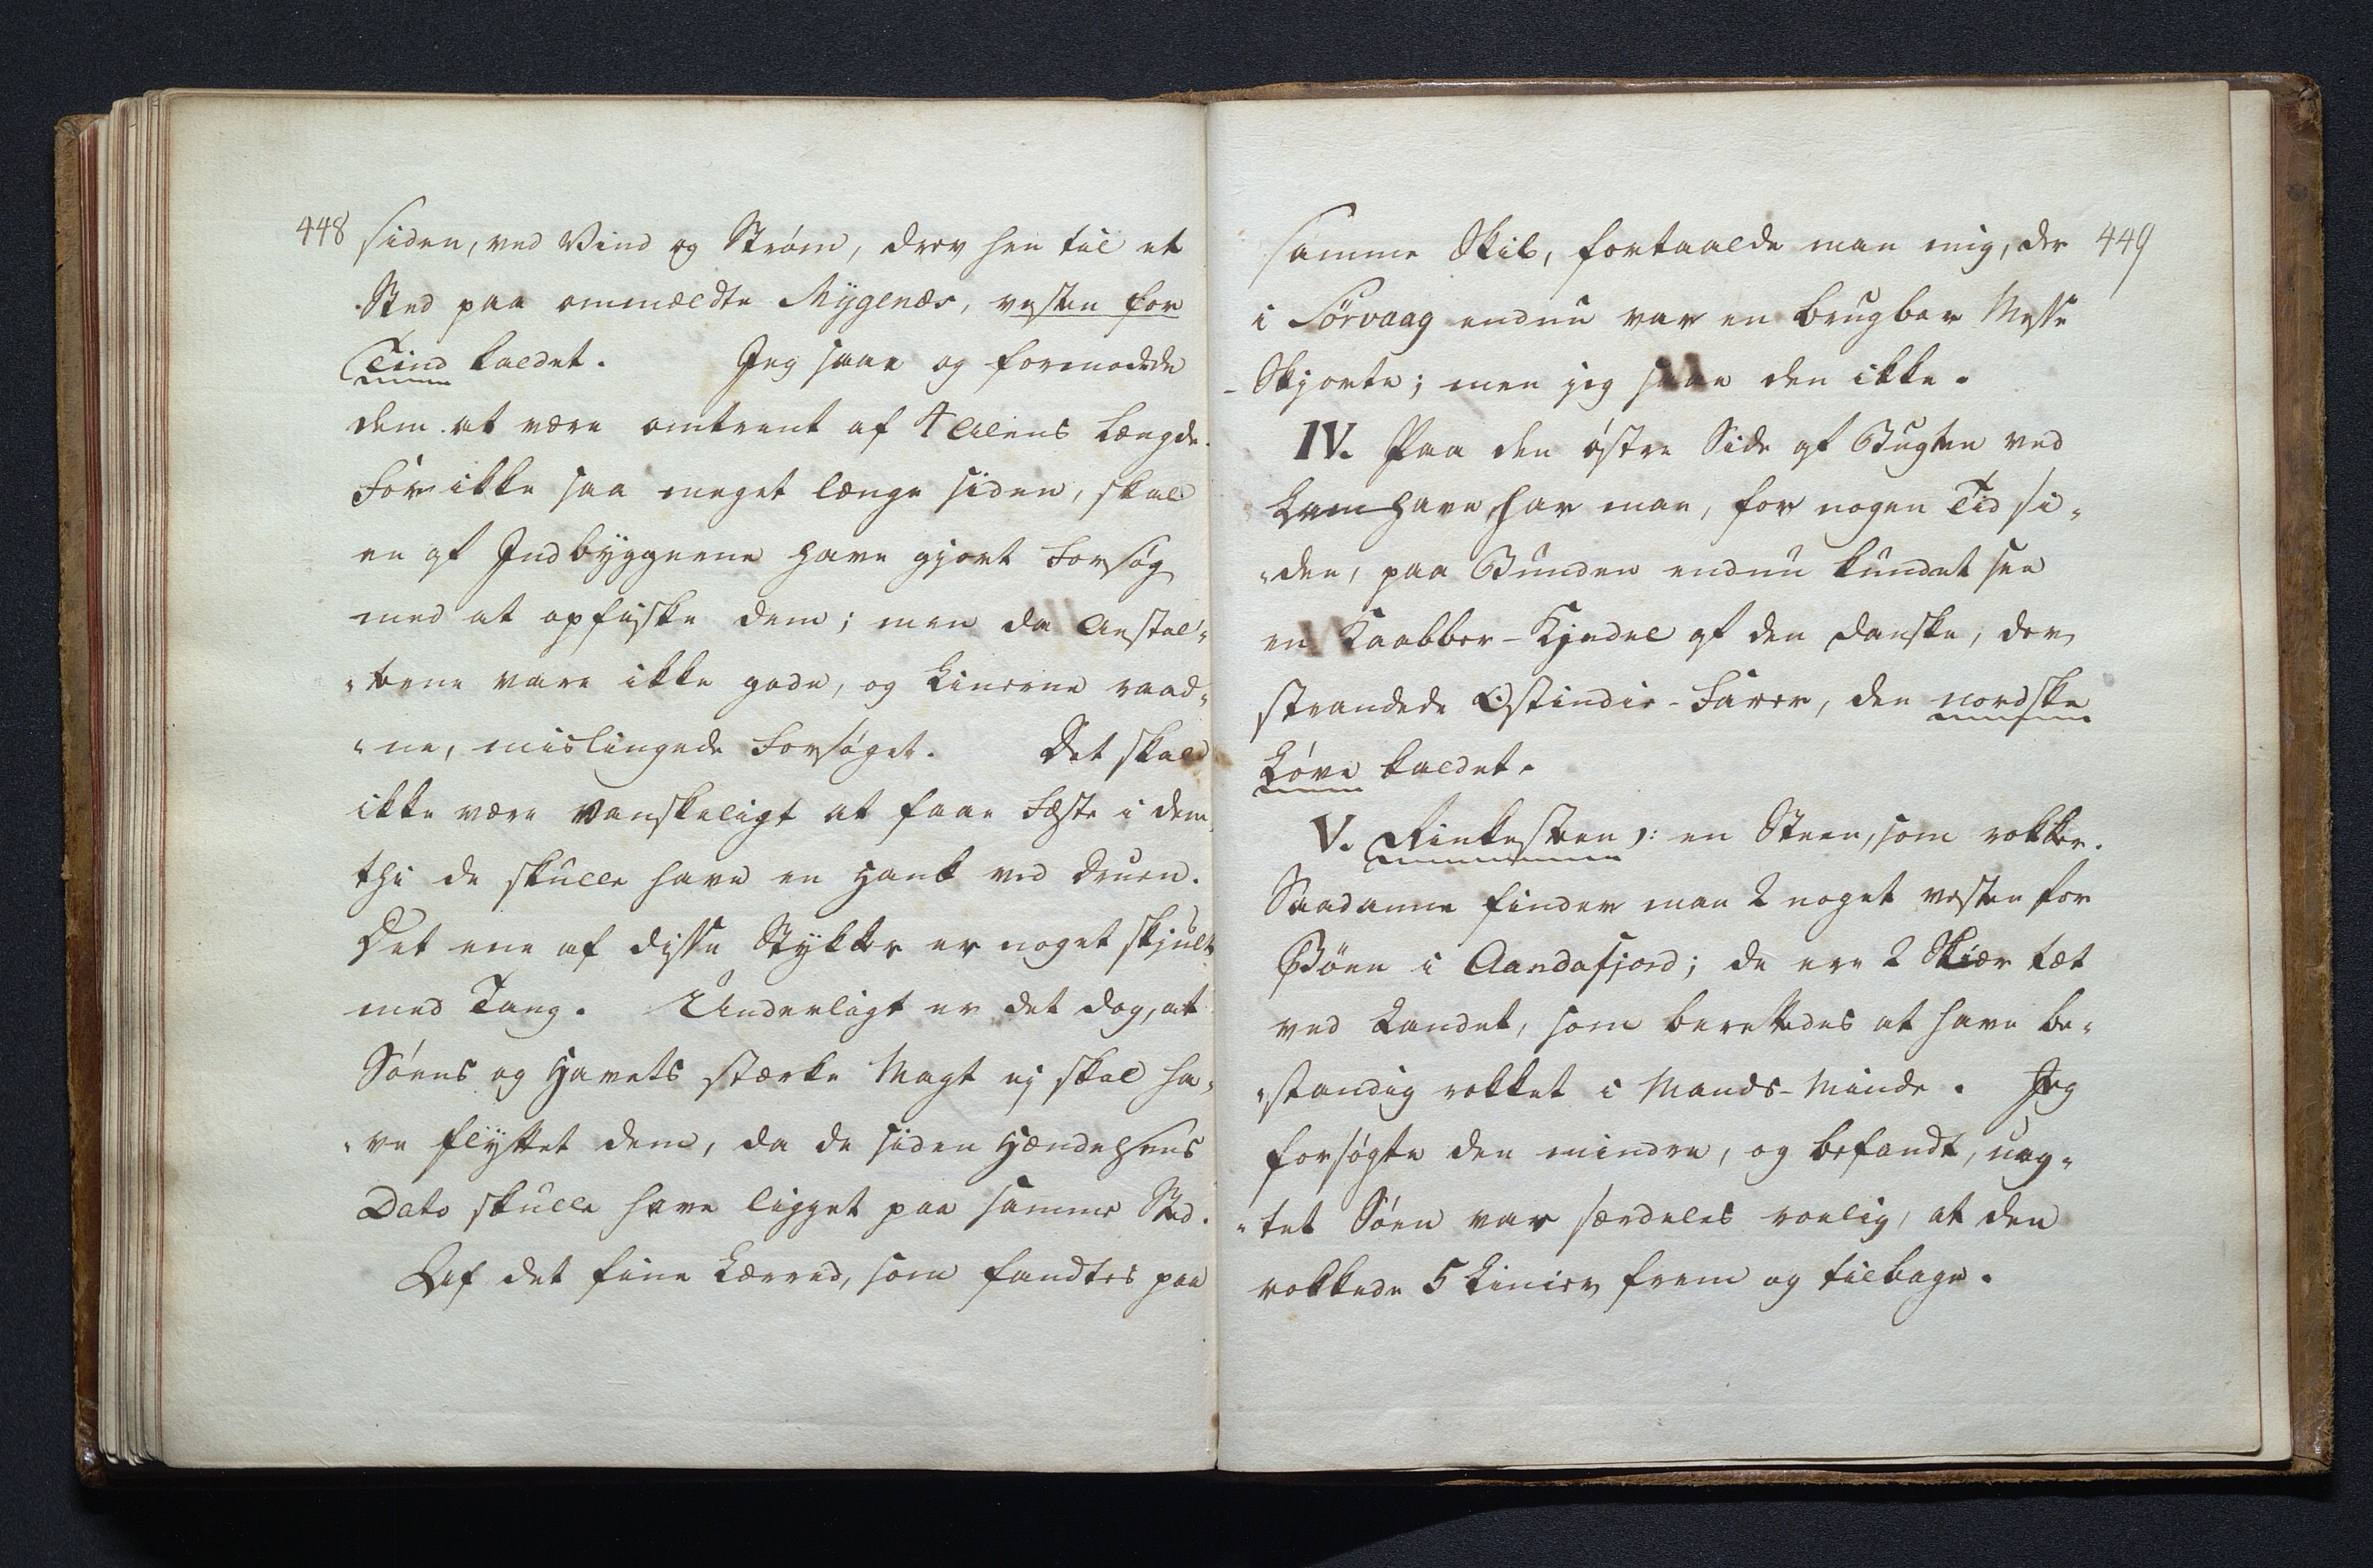 448
siden, ved Vind og Strøm, drev hen til et
Sted paa ommældte Mygenæs, vesten for
Tind kaldet. Jeg saae og formodede
dem at være omtrent af 4 Alens Længde.
For ikke saa meget længe siden, skal
en af Indbyggerne have gjort Forsøg
med at opfiske dem; men da Anstal-
-terne vare ikke gode, og Linerne raad-
-ne, mislingede Forsøget. Det skal
ikke være vanskeligt at faae Fæste i dem,
thi de skulle have en Hank ved Druen.
Det ene af disse Stykker er noget skjult
med Tang. Underligt er det dog, at
Søens og Havets stærke Magt ej skal ha-
-ve flyttet dem, da de siden Hændelsens
Dato skulle have ligget paa samme Sted.
Af det fine Lærred, som fandtes paa
449
samme Skib, fortaalde man mig, der
i Sørvaag endnu var en brugbar Messe
-Skjorte; men jeg saae den ikke.
IV. Paa den østre Side af Bugten ved
Lamhave, har man, for nogen Tid si-
-den, paa Bunden endnu kundet see
en Kaabber-Kjedel af den danske, der
strandede Ostindie-Farer, den nordske
Løve kaldet.
V. Rinkesteen ɔ: en Steen, som rokker.
Saadanne finder man 2 noget vesten for
Böen i Aandafjord; de ere 2 Skiær tæt
ved Landet, som berettedes at have be-
-standig rokket i Mands-Minde. Jeg
forsøgte den mindre, og befandt, uag-
-tet Søen var særdeles roelig, at den
rokkede 5 Linier frem og tilbage.